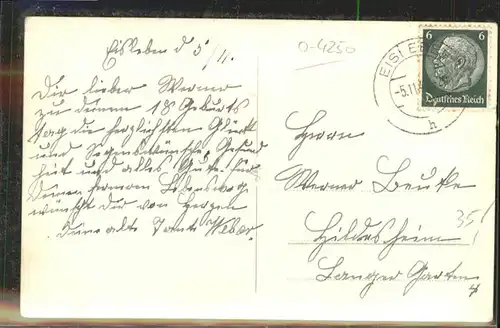 Eisleben d 5/11.
0-4250
Dir lieber Werner
zu deinem 18 Geburts
tag die herzlichsten Glück
und Segenswünsche, Gesund
heit und alles Gute. Für
Deinen ferneren Lebensweg
wünscht Dir von Herzen
Deine alte Tante Weber.
6 6
Deutsches Reich
EISLEBEN
-5.11.
h
Herrn
Werner Beuke
Hildesheim
Langer Garten
35